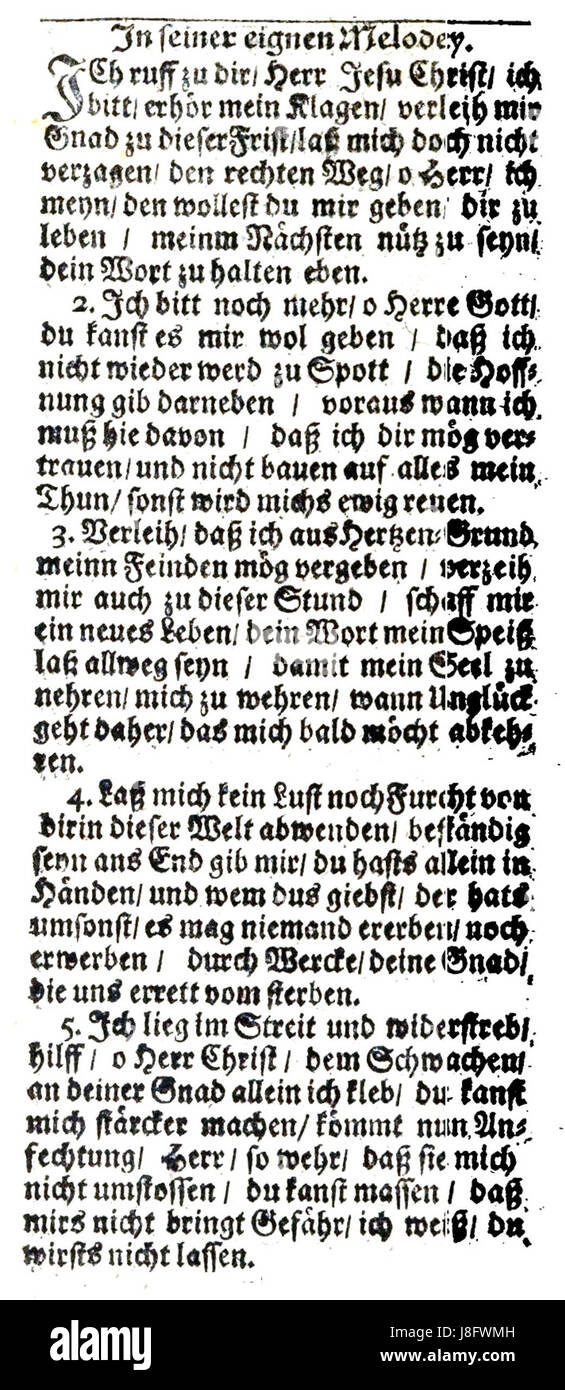 In seiner eignen Melodey.
ICh ruff zu dir/ Herr Jesu Christ/ ich
bitt/ erhör mein Klagen/ verleih mir
Gnad zu dieser Frist/ laß mich doch nicht
verzagen/ den rechten Weg/ o Herr/ ich
meyn/ den wollest du mir geben/ dir zu
leben / meinm Nächsten nütz zu seyn/
dein Wort zu halten eben.
2. Ich bitt noch mehr/ o Herre Gott/
du kanst es mir wol geben / daß ich
nicht wieder werd zu Spott / die Hoff-
nung gib darneben / voraus wann ich
muß hie davon / daß ich dir mög ver-
trauen/ und nicht bauen auf alles mein
Thun/ sonst wird michs ewig reuen.
3. Verleih/ daß ich aus Hertzen-Grund
meinn Feinden mög vergeben / verzeih
mir auch zu dieser Stund / schaff mir
ein neues Leben/ dein Wort mein Speiß
laß allweg seyn / damit mein Seel zu
nehren/ mich zu wehren/ wann Unglück
geht daher/ das mich bald möcht abkeh-
ren.
4. Laß mich kein Lust noch Furcht von
dir in dieser Welt abwenden/ beständig
seyn ans End gib mir/ du hasts allein in
Händen/ und wem dus giebst/ der hats
umsonst/ es mag niemand ererben/ noch
erwerben / durch Wercke/ deine Gnad/
die uns errett vom sterben.
5. Ich lieg im Streit und widerstreb/
hilff/ o Herr Christ/ dem Schwachen/
an deiner Gnad allein ich kleb/ du kanst
mich stärcker machen/ kömmt nun An-
fechtung/ Herr/ so wehr/ daß sie mich
nicht umstossen / du kanst massen / daß
mirs nicht bringt Gefähr/ ich weiß/ du
wirsts nicht lassen.
alamy
Image ID: J8FWMH
www.alamy.com